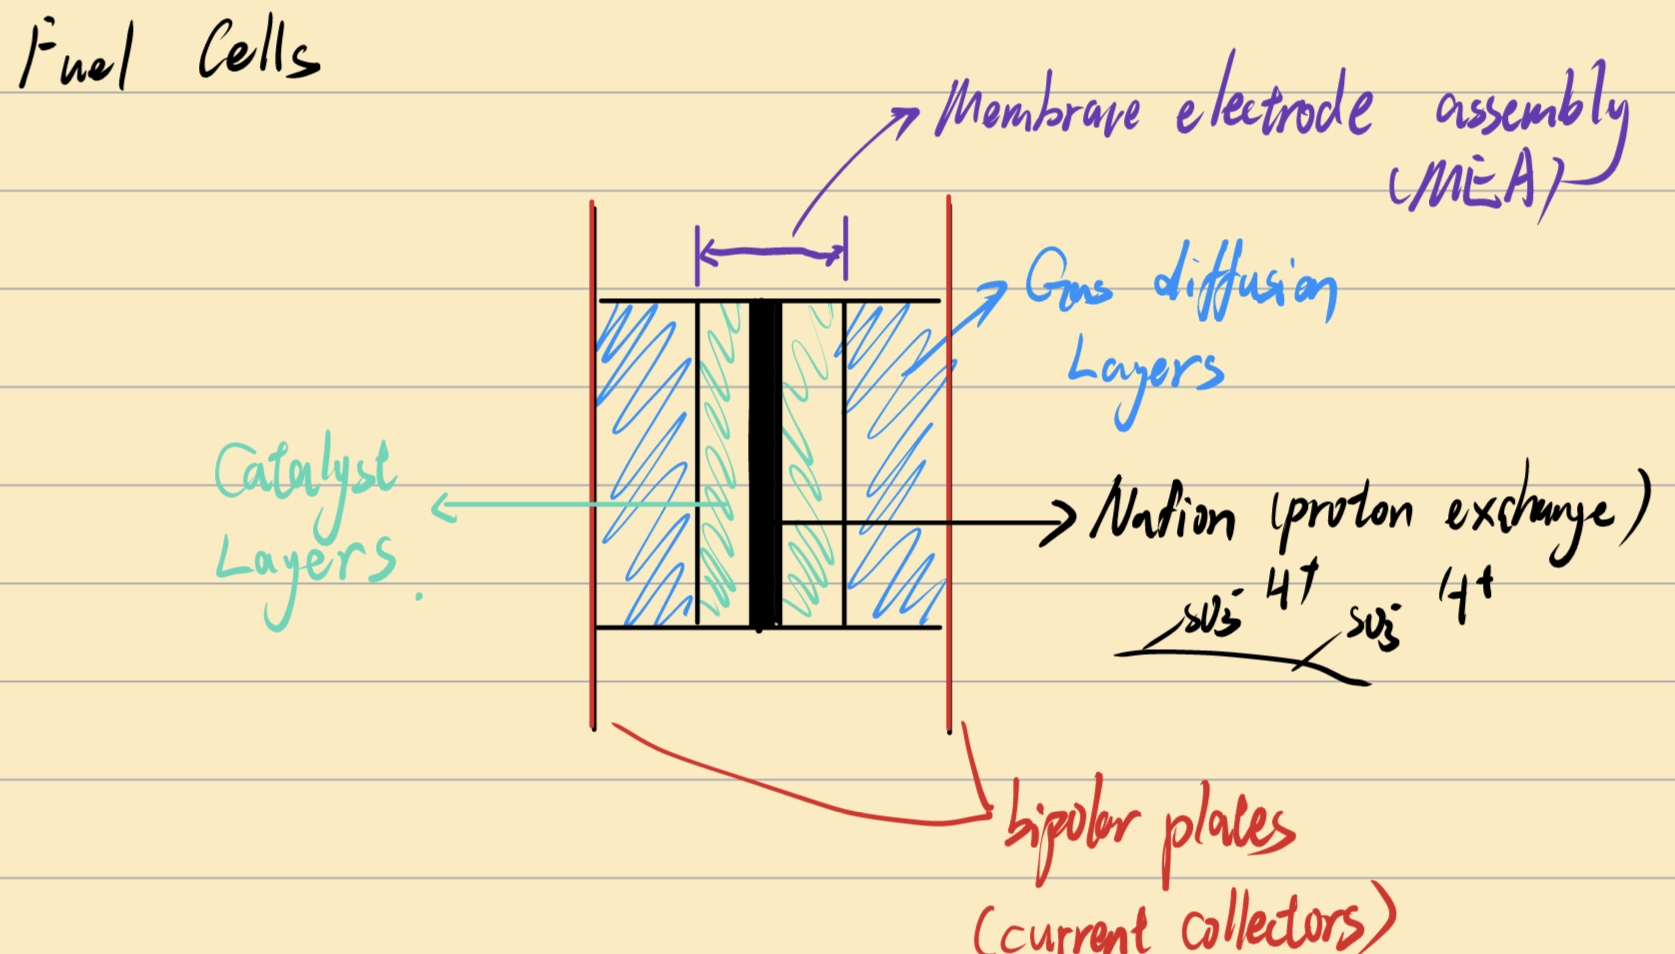 Fuel Cells
Membrane electrode assembly
(MEA)
Gas diffusion
Layers
Catalyst
Layers
Nafion (proton exchange)
SO3- H+ SO3- H+
bipolar plates
(current collectors)